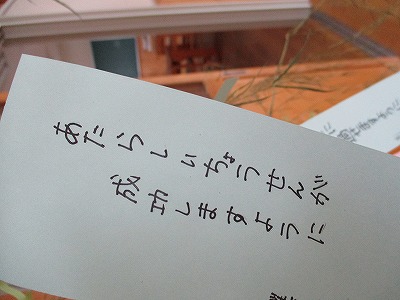 あだらしいちょうせんが
成功しますように